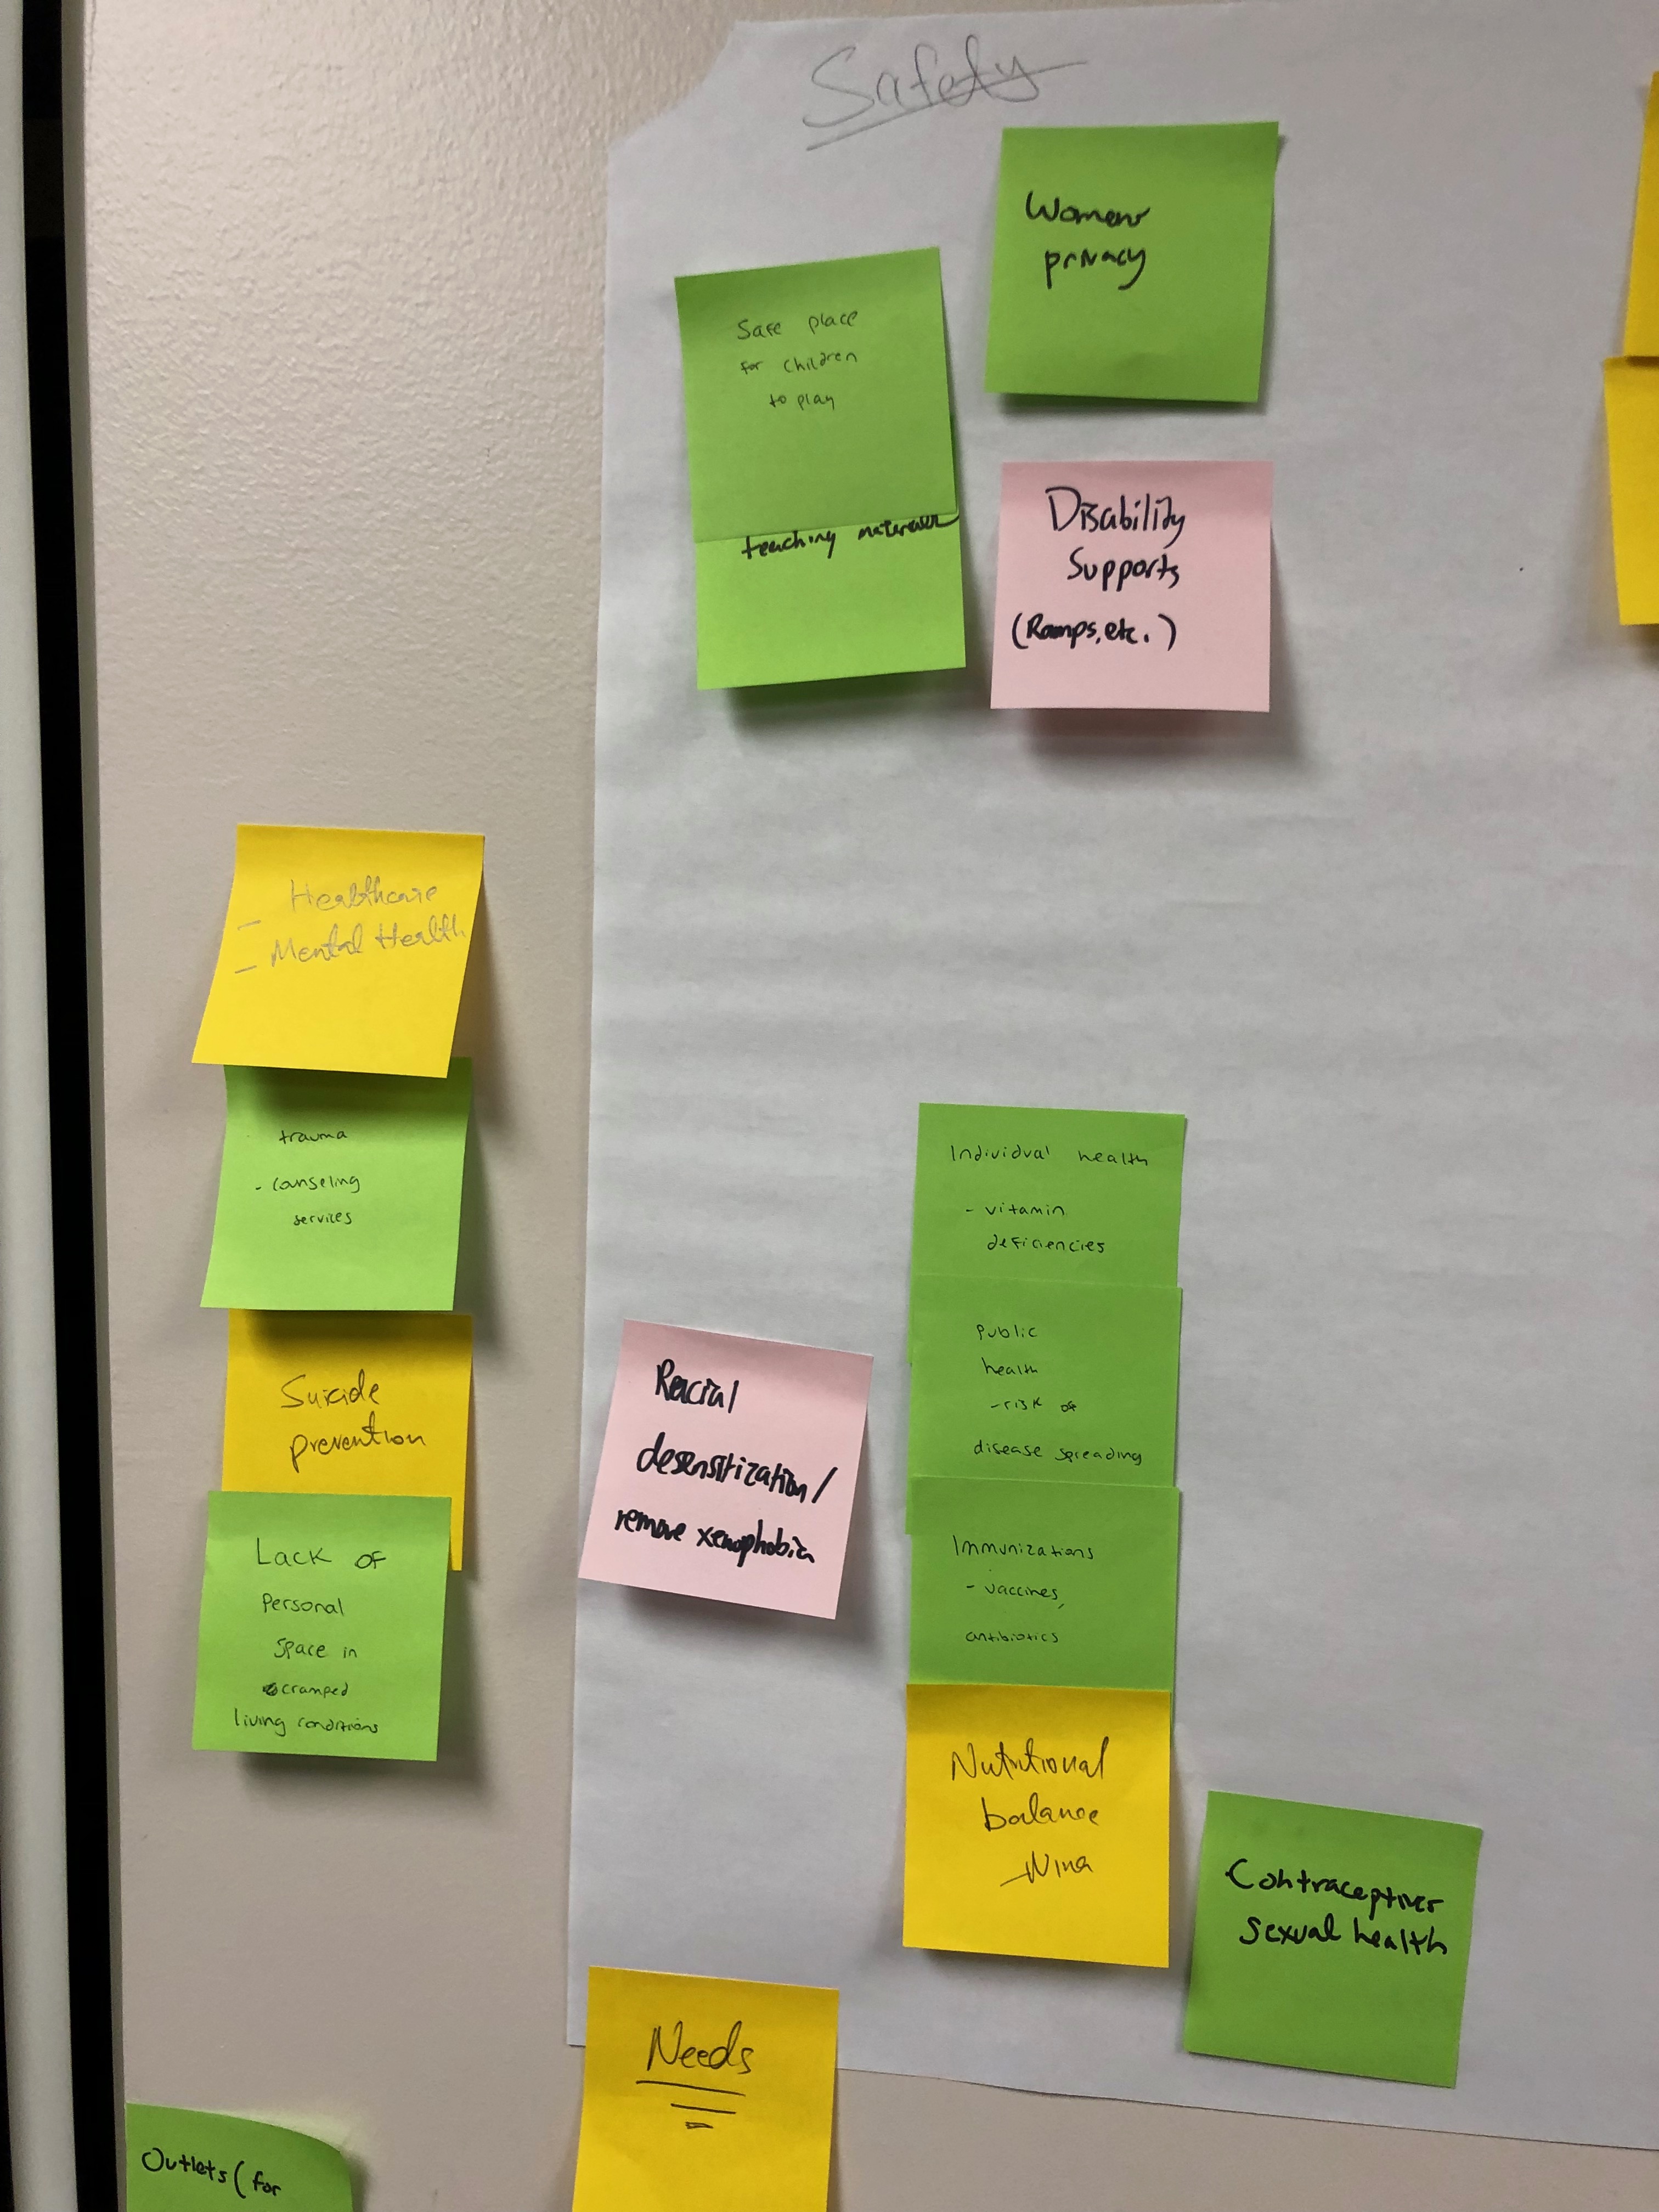 Safety
Womens
privacy
Safe place
for children
to play
teaching materials
Disability
Supports
(Ramps, etc.)
- Healthcare
- Mental Health
trauma
- counseling
services
Suicide
prevention
Lack of
personal
space in
cramped
living conditions
Racial
desensitization/
remove xenophobia
Individual health
- vitamin
deficiencies
Public
health
- risk of
disease spreading
Immunizations
- vaccines,
antibiotics
Nutritional
balance
- Nina
Contraceptives
sexual health
Needs
Outlets (for